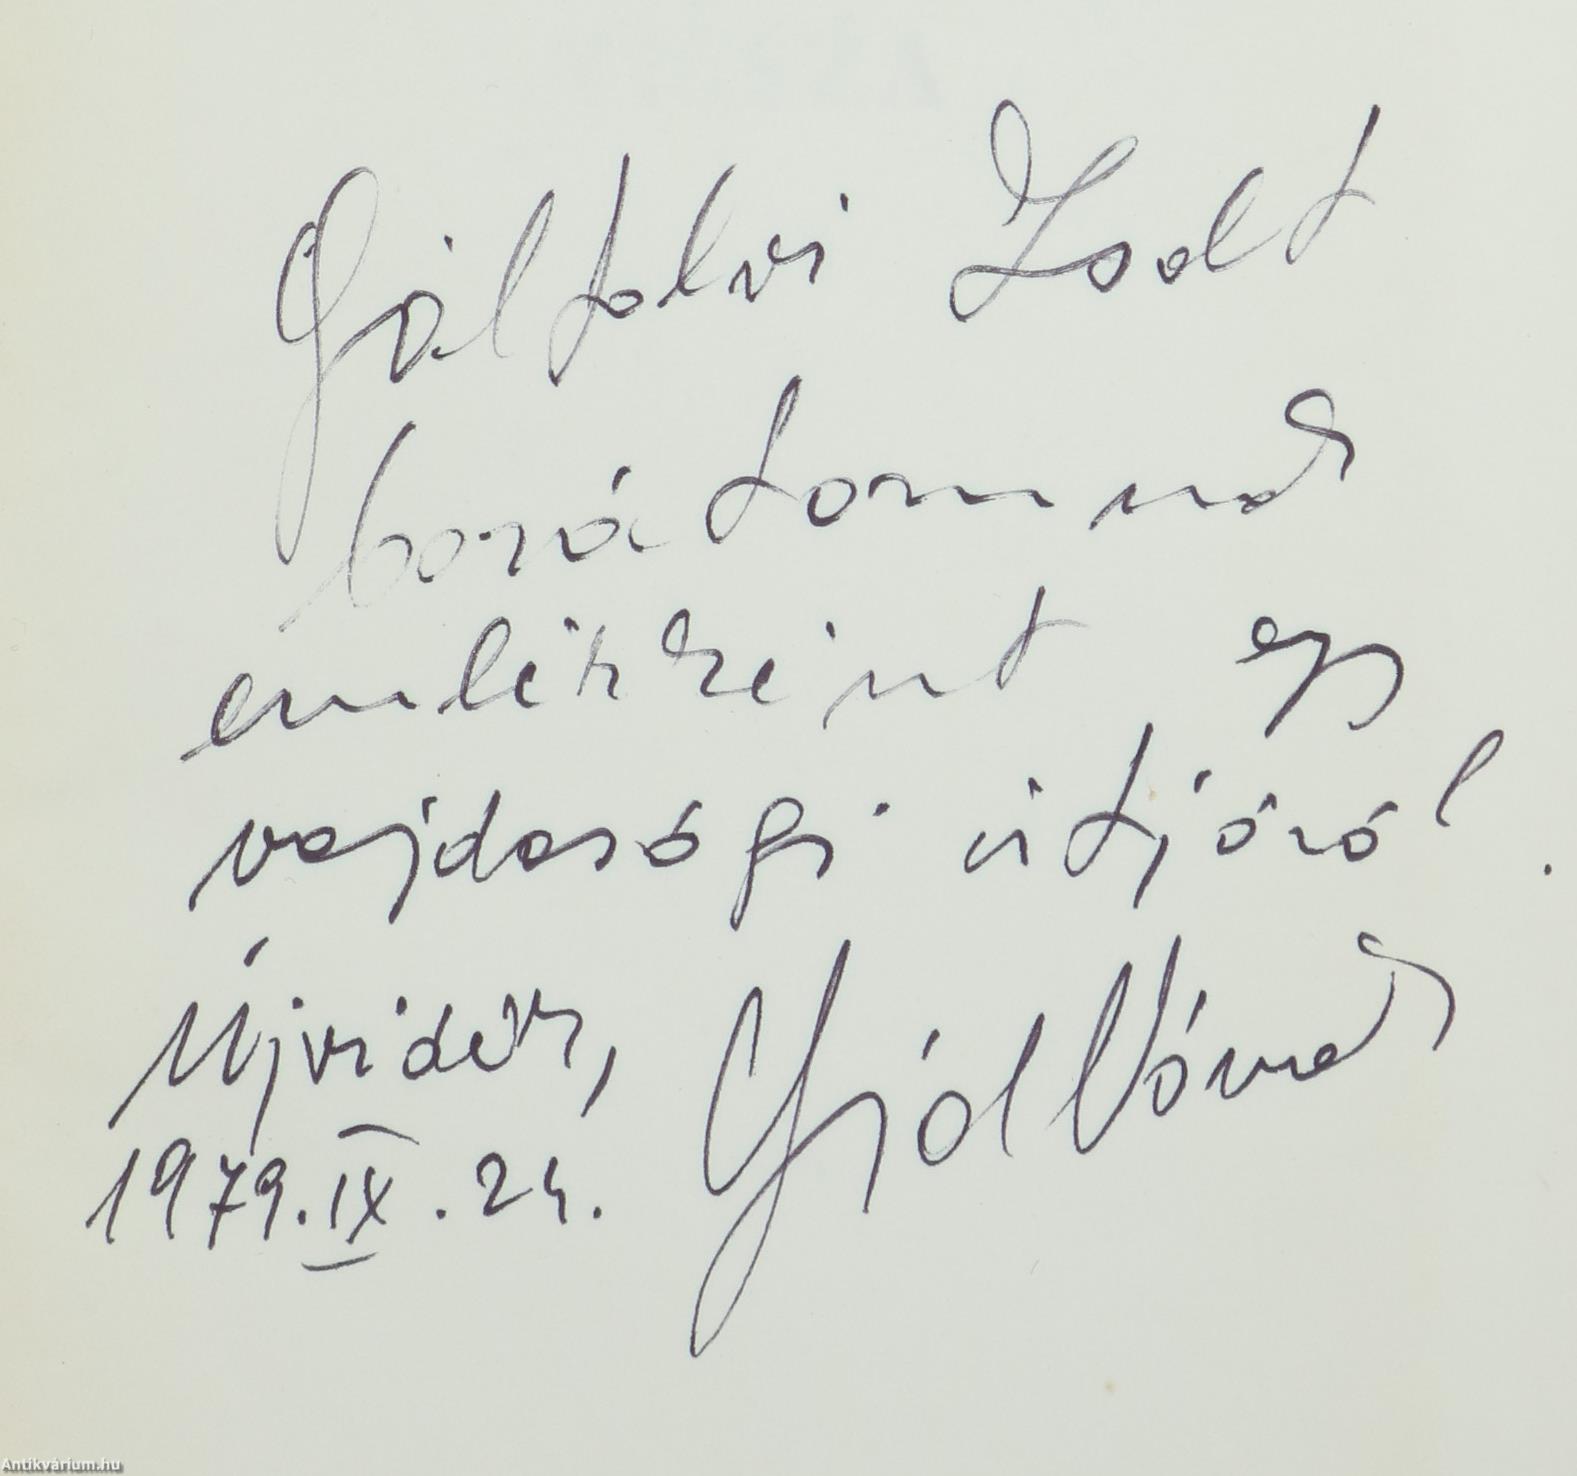 Gálfalvi Zsolt
barátomnak
emlékként egy
vajdasági útjáról.
Újvidék,
1979. IX. 24.
Antikvárium.hu